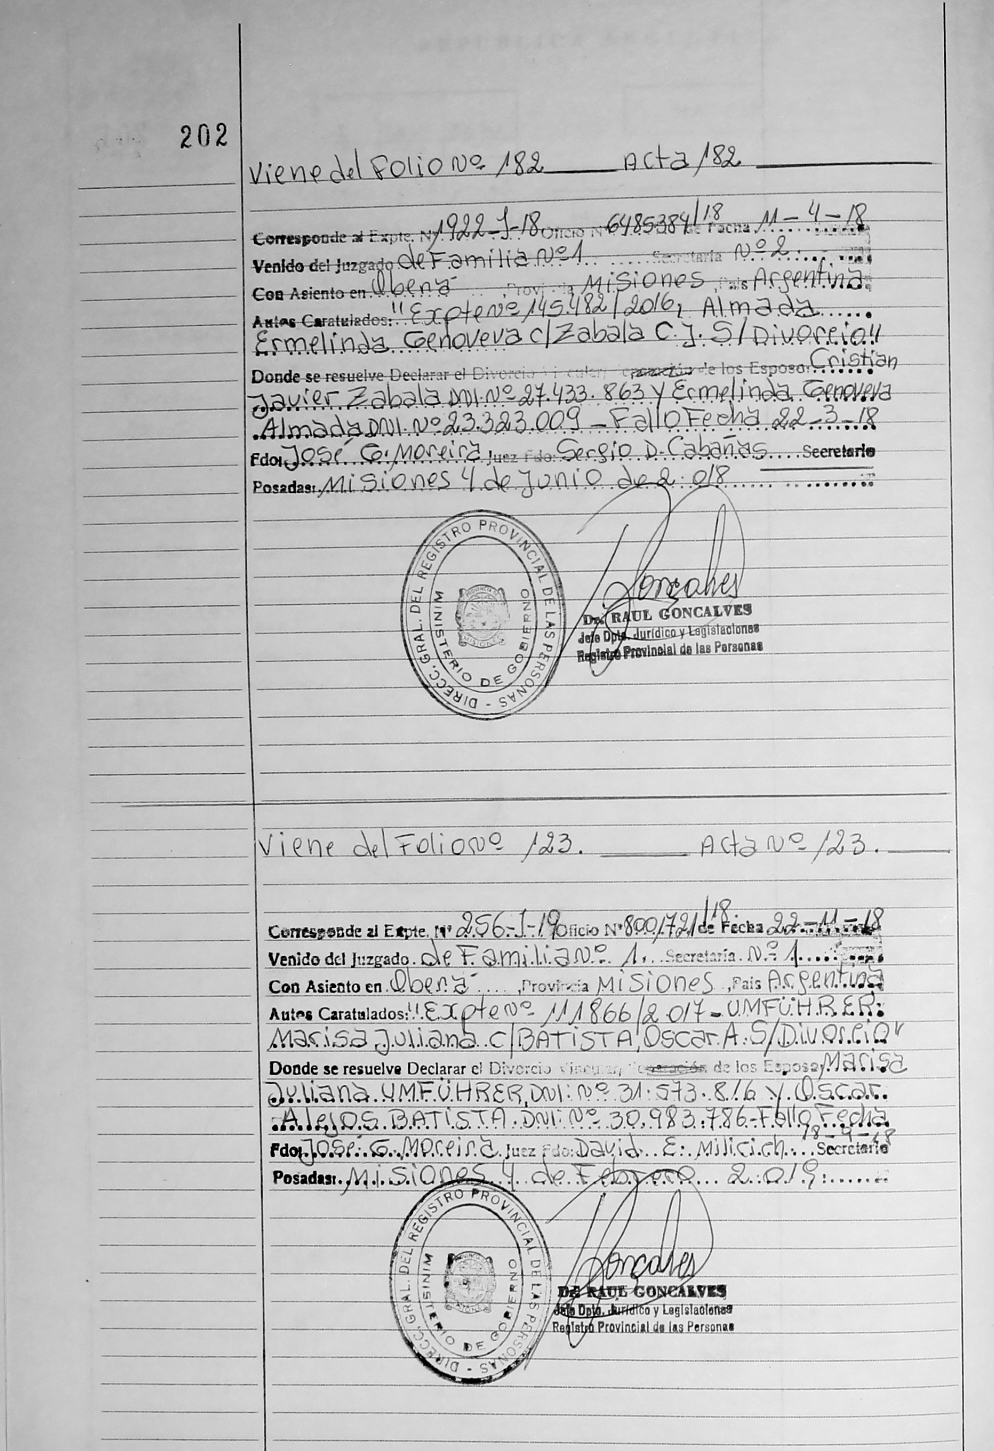 202
Viene del Folio Nº 182 Acta 182
Corresponde al Expte. Nº 1922-J-18 Oficio Nº 6485384/18 de Fecha 11-4-18
Venido del Juzgado de Familia Nº 1 Secretaría Nº 2
Con Asiento en Oberá Provincia Misiones, País Argentina
Autos Caratulados: "Expte Nº 145.482/2016, Almada
Ermelinda Genoveva c/Zabala C.J. S/Divorcio"
Donde se resuelve Declarar el Divorcio Vincular de los Esposo: Cristian
Javier Zabala DNI. Nº 27.433.863 y Ermelinda Genoveva
Almada DNI. Nº 23.323.009 - Fallo Fecha 22-3-18
Fdo: José G. Moreira Juez Fdo: Sergio D. Cabañas Secretario
Posadas: Misiones 4 de Junio de 2.018
DIRECC. GRAL. DEL REGISTRO PROVINCIAL DE LAS PERSONAS -
MINISTERIO DE GOBIERNO
Goncalves
Dr. RAUL GONCALVES
Jefe Dpto. Jurídico y Legislaciones
Registro Provincial de las Personas
Viene del Folio Nº 123. Acta Nº 123.
Corresponde al Expte. Nº 256-J-19 Oficio Nº 8001721/18 de Fecha 22-11-18
Venido del Juzgado de Familia Nº 1. Secretaría Nº 1
Con Asiento en Oberá, Provincia Misiones, País Argentina
Autos Caratulados: "Expte Nº 111866/2017-UMFÜHRER:
Marisa Juliana c/BATISTA, Oscar A. S/Divorcio"
Donde se resuelve Declarar el Divorcio Vincular de los Esposo: Marisa
Juliana UMFÜHRER, DNI: Nº 31.573.816 y Oscar
Alejos BATISTA DNI: Nº 30.983.786-Fallo Fecha
18-9-18
Fdo: José G. Moreira Juez Fdo: David E. Milicich Secretario
Posadas: Misiones 4 de Febrero 2.019
DIRECC. GRAL. DEL REGISTRO PROVINCIAL DE LAS PERSONAS -
MINISTERIO DE GOBIERNO
Goncalves
Dr RAUL GONCALVES
Jefe Dpto. Jurídico y Legislaciones
Registro Provincial de las Personas